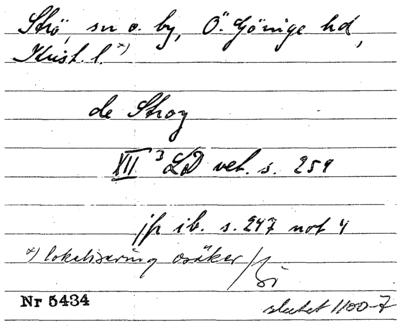 Strö, sn o. by, Ö. Göinge hd,
Krist. l. x)
de Stroy
XII 3 LD vet. s. 259
jfr ib. s. 247 not 4
x) lokalisering osäker /
Nr 5434
slutet 1100-t